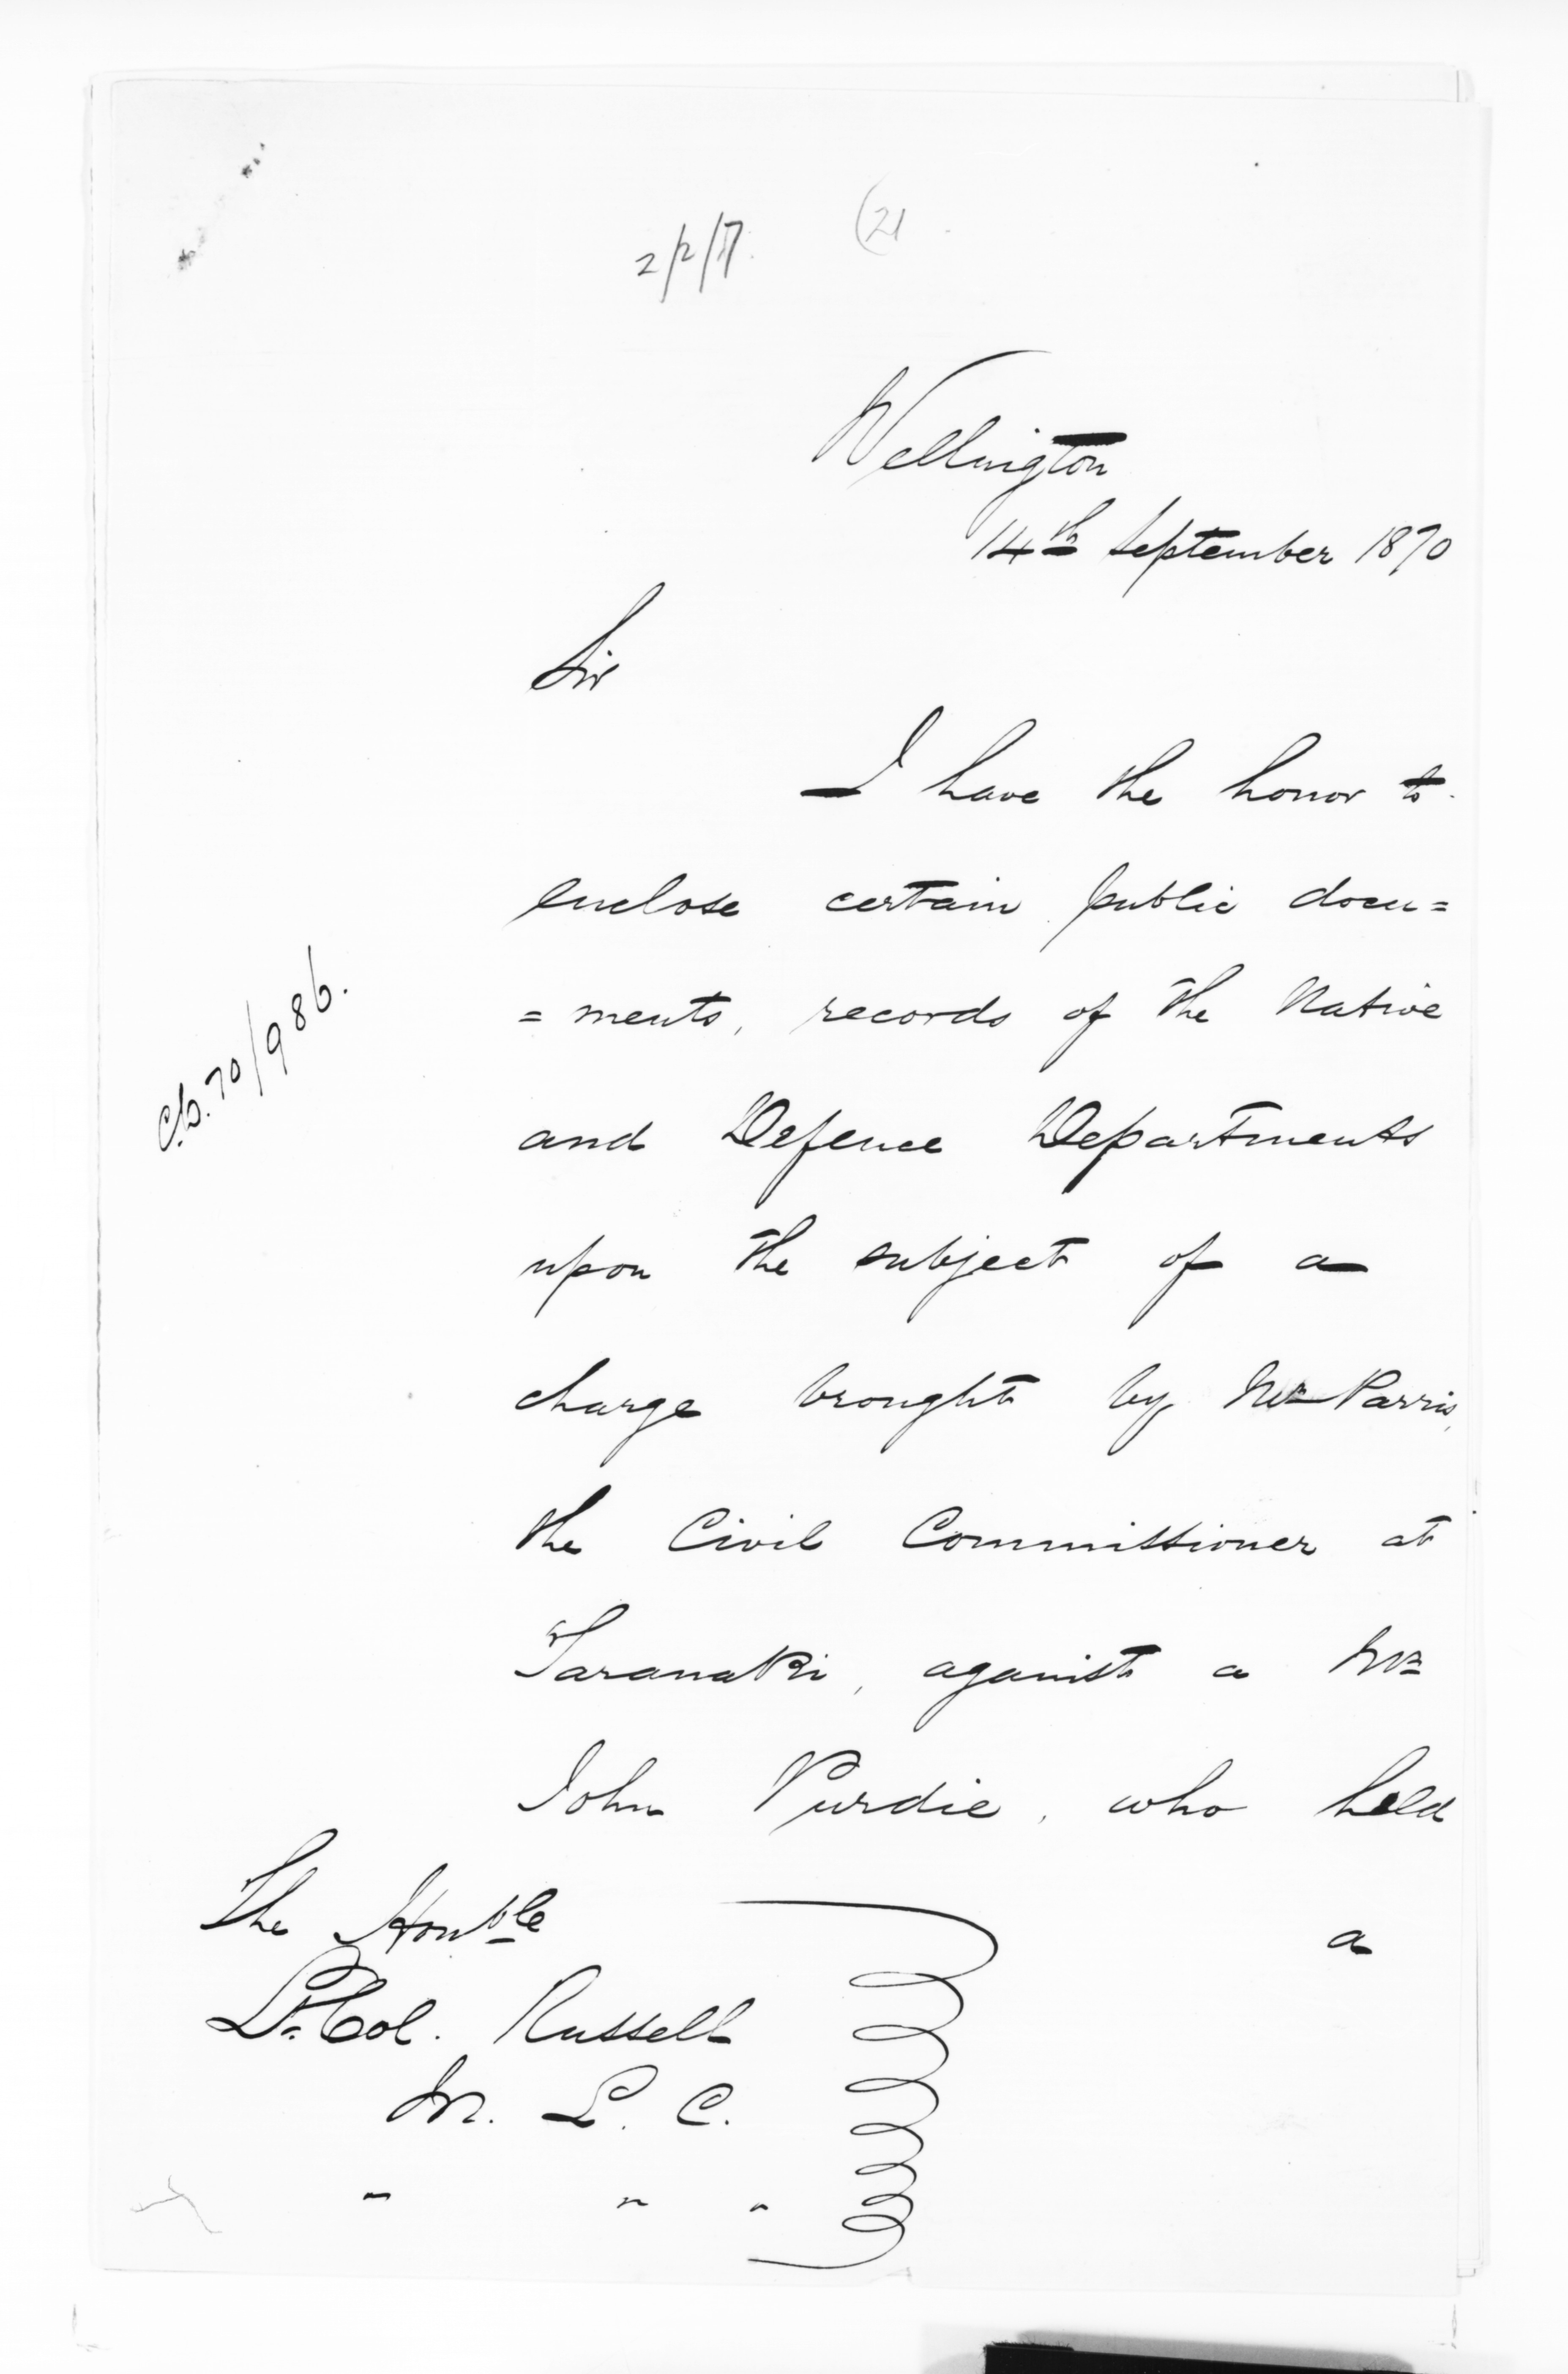 (21
Wellington
14th September 1870
Sir
I have the honor to
enclose certain public docu=
=ments, records of the Native
and Defence Departments
upon the subject of a
charge brought by Mr Parris,
the Civil Commissioner at
Taranaki, against a Mr
John Purdie, who held
a
The Honble
Lt. Col. Russell
M. L. C.
70/986.